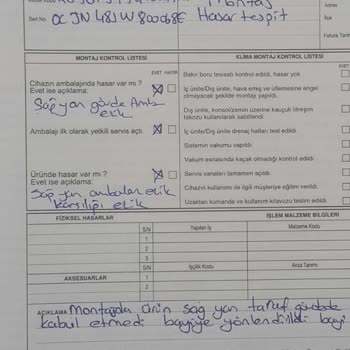 Montaj
Seri No 0CJN4SJW800068E Hasar tespit
Adres
İlçe
Fatura Tarihi
MONTAJ KONTROL LİSTESİ
EVET HAYIR
Cihazın ambalajında hasar var mı ?
Evet ise açıklama:
Sağ yan gövde Amb
ezik
Ambalajı ilk olarak yetkili servis açtı.
Üründe hasar var mı ?
Evet ise açıklama:
Sağ yan ambalaj ezik
karşılığı ezik
KLİMA MONTAJ KONTROL LİSTESİ
EVET
Bakır boru tesisatı kontrol edildi, hasar yok
İç ünite/Dış ünite, hava emiş ve üflemesine engel
olmayacak şekilde montajı yapıldı.
Dış ünite, konsol/zemin üzerine kauçuk titreşim
takozu kullanılarak sabitlendi.
İç ünite/Dış ünite drenaj hatları test edildi
Sistemin vakumu yapıldı.
Vakum esnasında kaçak olmadığı kontrol edildi
Servis vanaları tamamen açıldı.
Cihazın kullanımı ile ilgili müşteriye eğitim verildi.
Uzaktan kumanda ve kullanım kılavuzu teslim edildi.
FİZİKSEL HASARLAR
İŞLEM MALZEME BİLGİLERİ
S/N Yapılan İş Malzeme Kodu
1
2
3
AKSESUARLAR
S/N İşçilik Kodu Arıza Tanımı
1
2
AÇIKLAMA montajda ürün sağ yan taraf gövdede
kabul etmedi bayiye yönlendirildi bayi